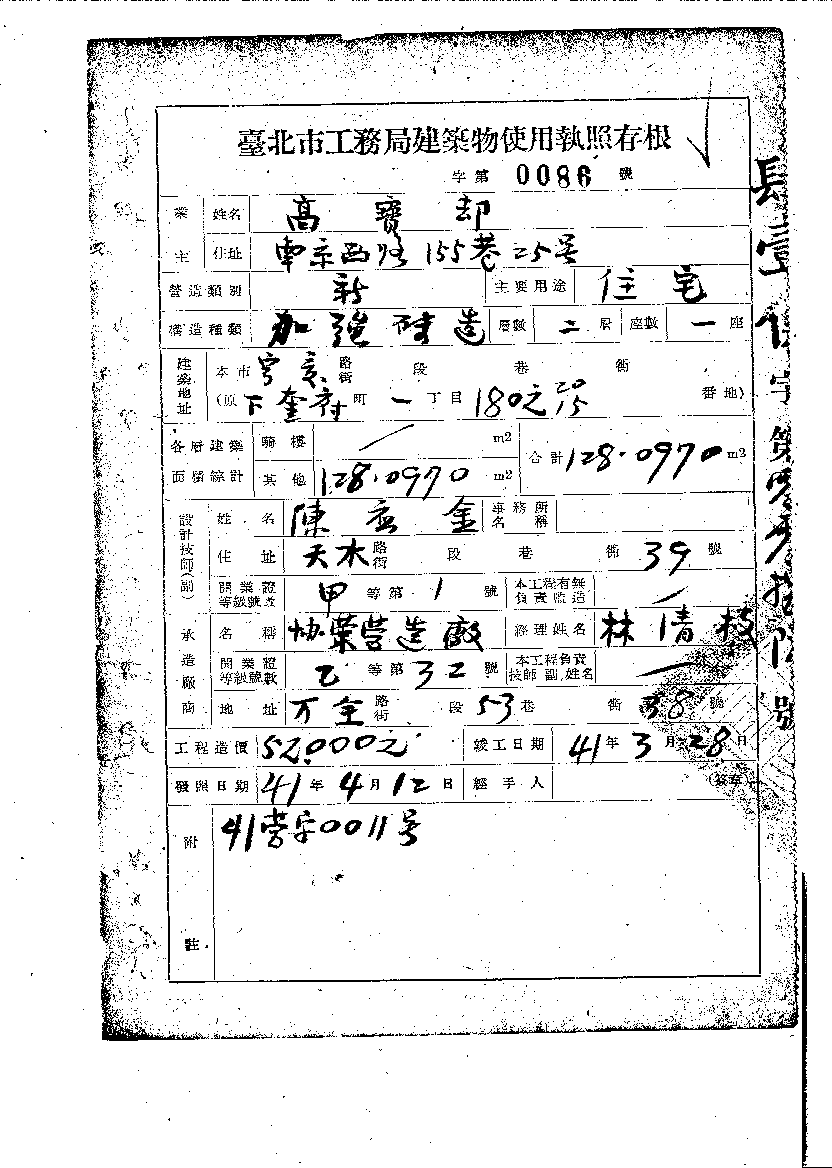 臺北市工務局建築物使用執照存根
字第 0086 號
業主 姓名 高寶却
住址 南京西路155巷25号
營造類別 新 主要用途 住宅
構造種類 加強磚造 層數 二層 座數 一座
建築地址 本市 路街 段 巷 衖
(原下奎府町一丁目180之20 15 番地)
各層建築面積綜計 騎樓 / m2 合計128.0970m2
其他 128.0970 m2
設計技師(副) 姓名 陳 金 事務所名稱
住址 天水路街 段 巷 衖 39 號
開業證等級號數 甲等第1號 本工程有無負責監造 /
承造廠商 名稱 協業營造廠 經理姓名 林清枝
開業證等級號數 乙等第32號 本工程負責技師 副 姓名
地址 万全路街 段53巷 衖38號
工程造價 52.000元 竣工日期 41年3月28日
發照日期 41年4月12日 經手人 (簽章)
附註 41營字0011号